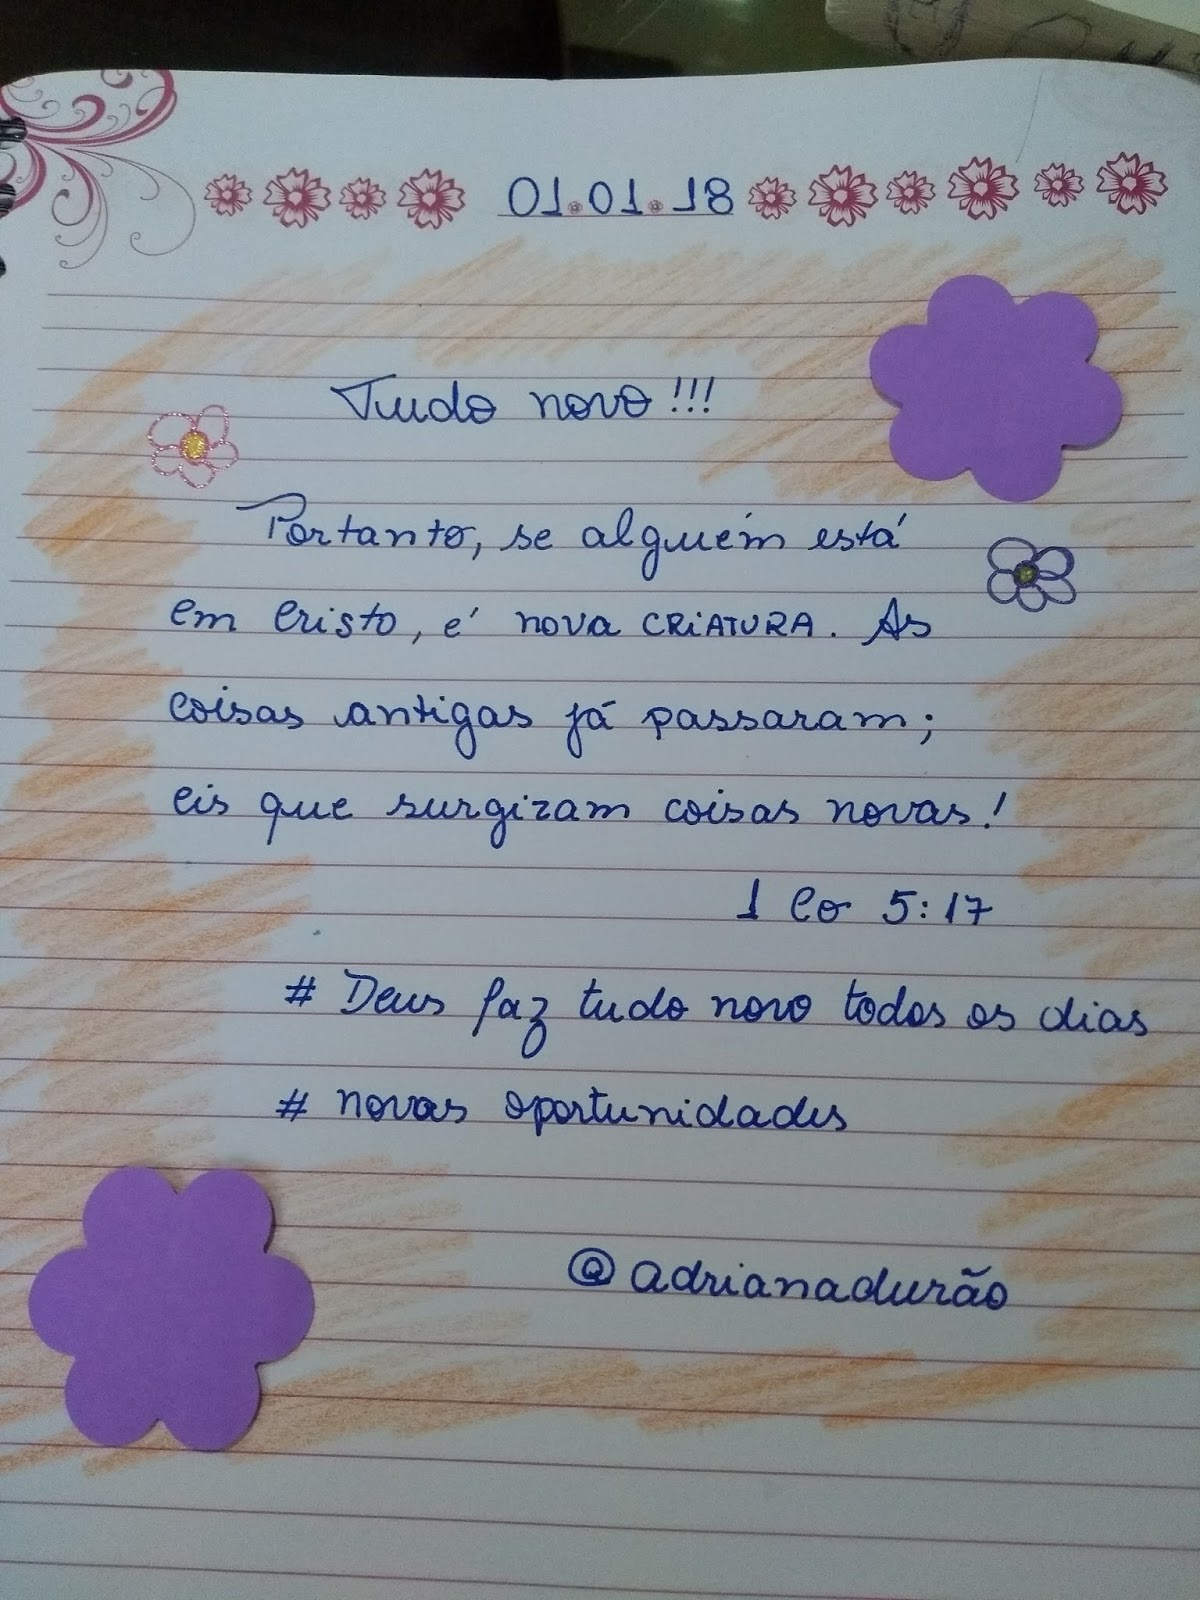 01.01.18
Tudo novo!!!
Portanto, se alguém está
em Cristo, é nova CRIATURA. As
coisas antigas já passaram;
eis que surgiram coisas novas!
1 Co 5:17
# Deus faz tudo novo todos os dias
# novas oportunidades
@adrianadurão